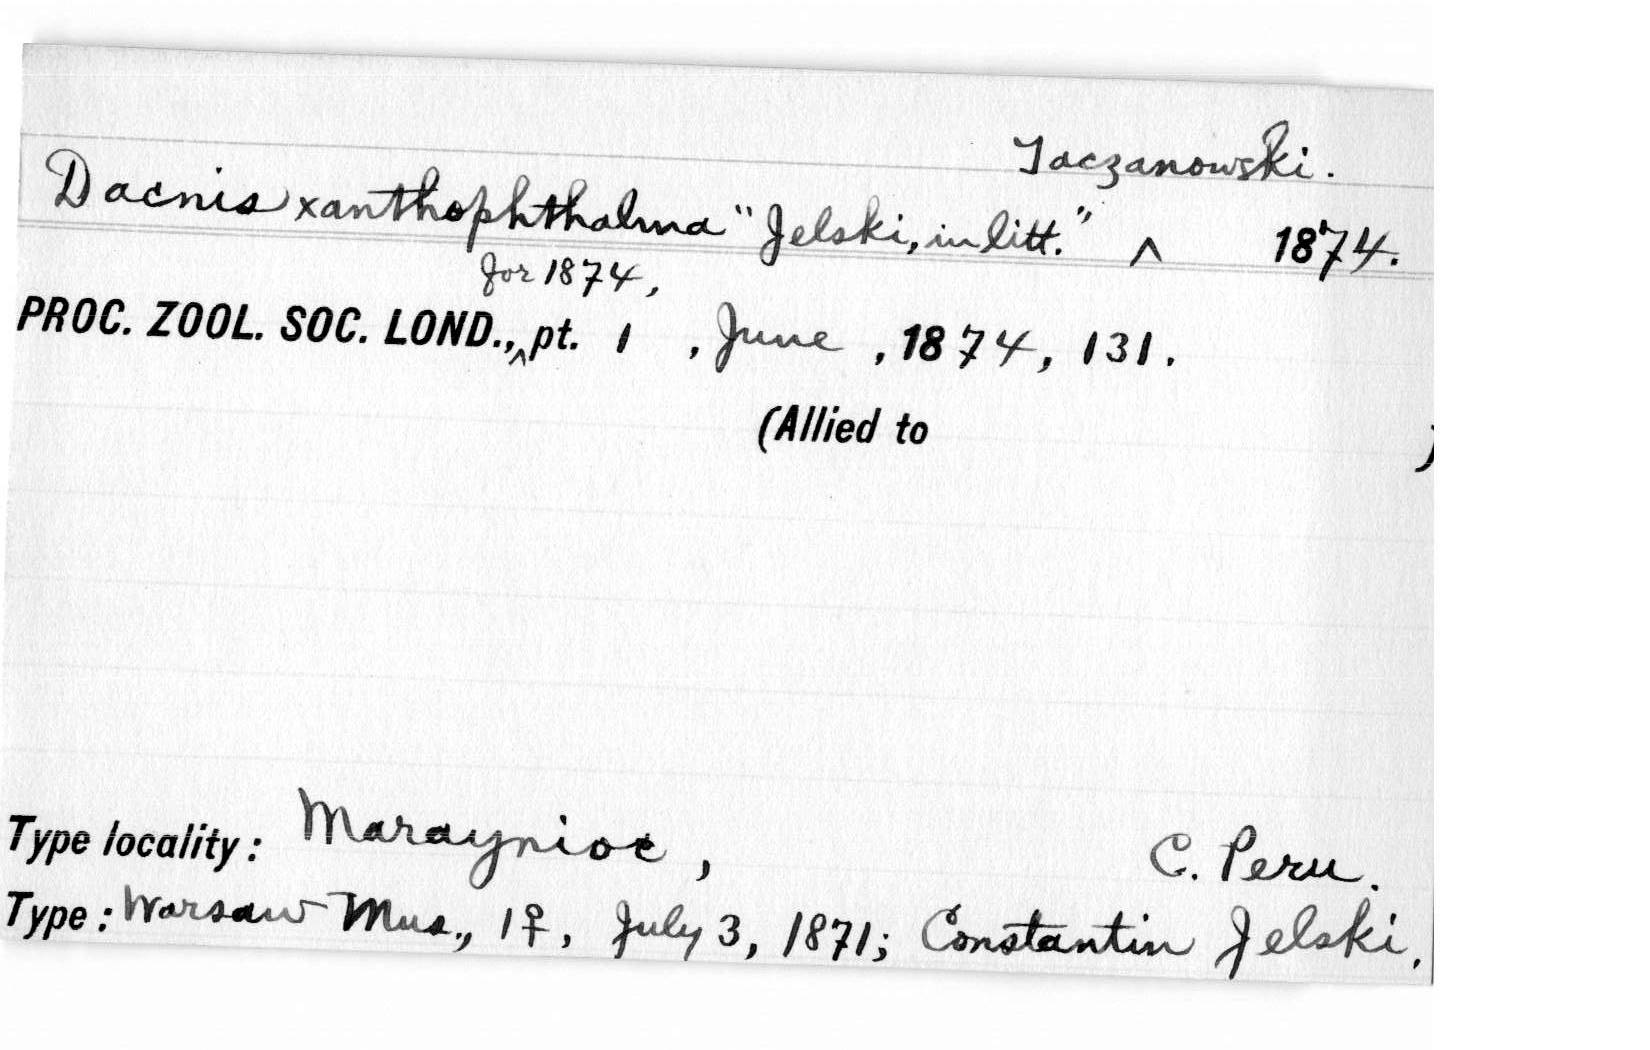 Taczanowski.
Dacnis xanthophthalma "Jelski, in litt." ^ 1874.
for 1874,
PROC. ZOOL. SOC. LOND., ^ pt. 1 , June , 1874, 131.
(Allied to )
Type locality: Maraynioc, C. Peru.
Type: Warsaw Mus., 1♀, July 3, 1871; Constantin Jelski.